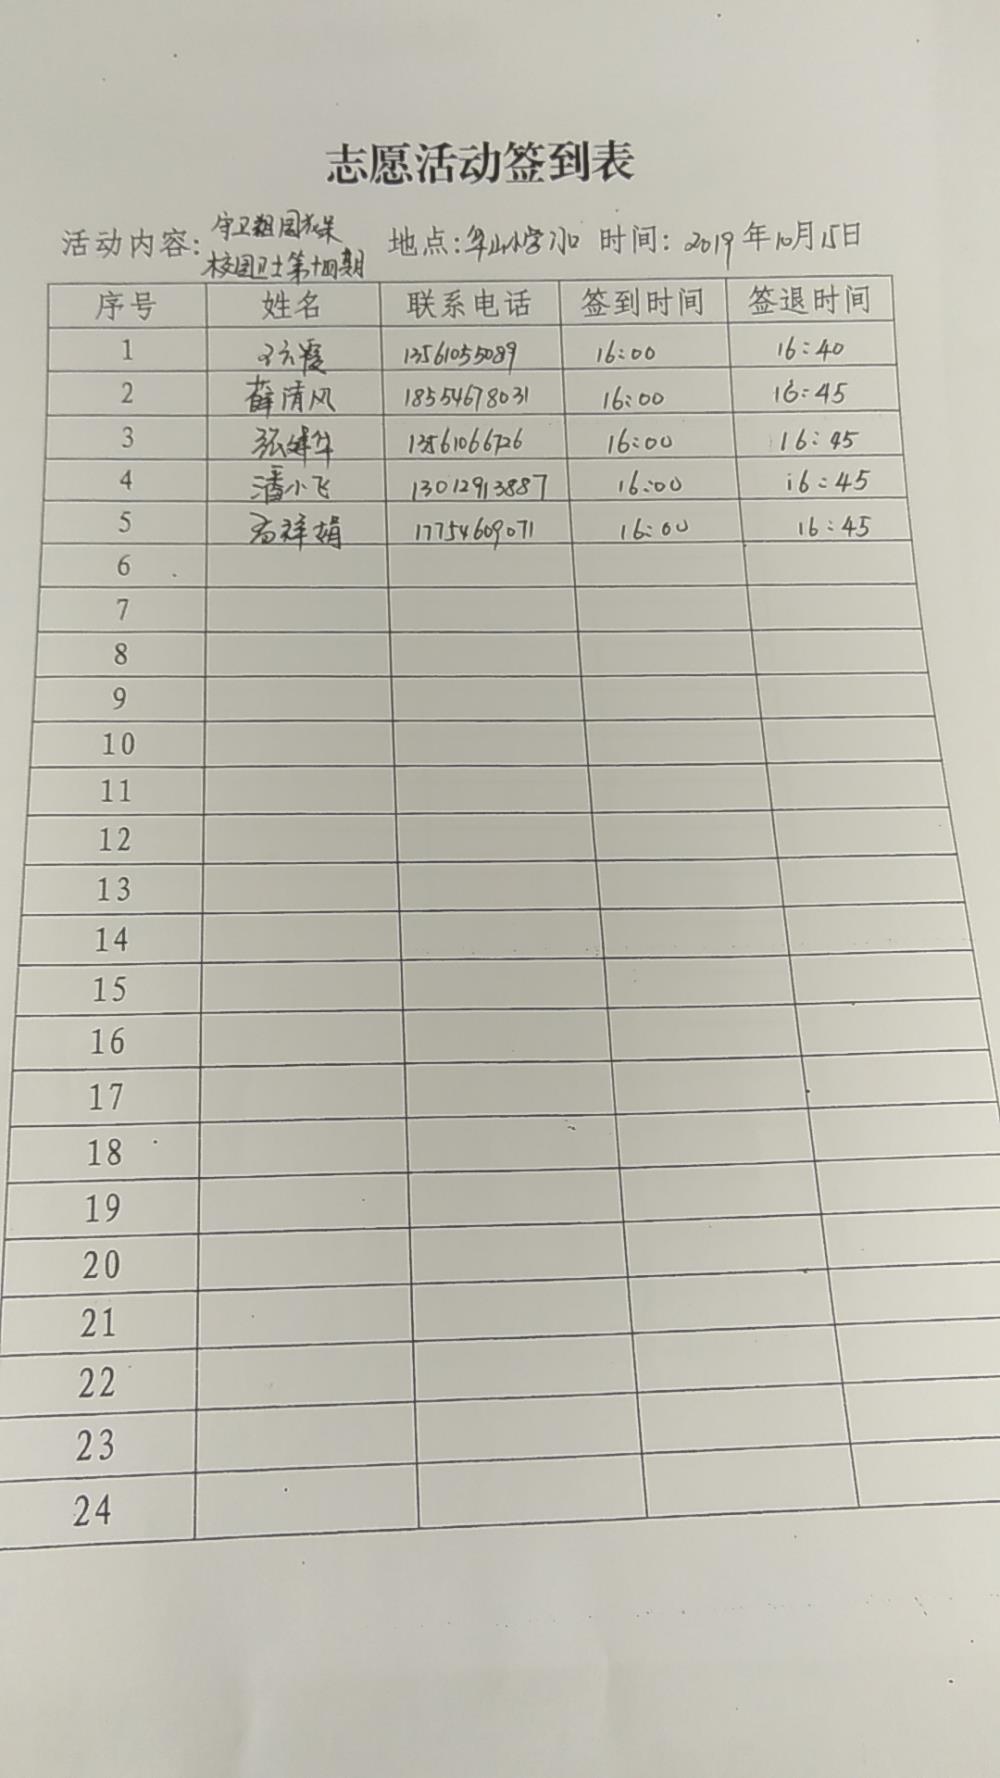 志愿活动签到表
活动内容: 守卫祖国花朵 地点: 华山小学门口 时间: 2019年10月15日
校园卫士第十四期
序号 姓名 联系电话 签到时间 签退时间
1 霞 13561055089 16:00 16:40
2 薛清风 18554678031 16:00 16:45
3 张建华 13561066726 16:00 16:45
4 潘小飞 13012913887 16:00 16:45
5 祥娟 17754609071 16:00 16:45
6
7
8
9
10
11
12
13
14
15
16
17
18
19
20
21
22
23
24